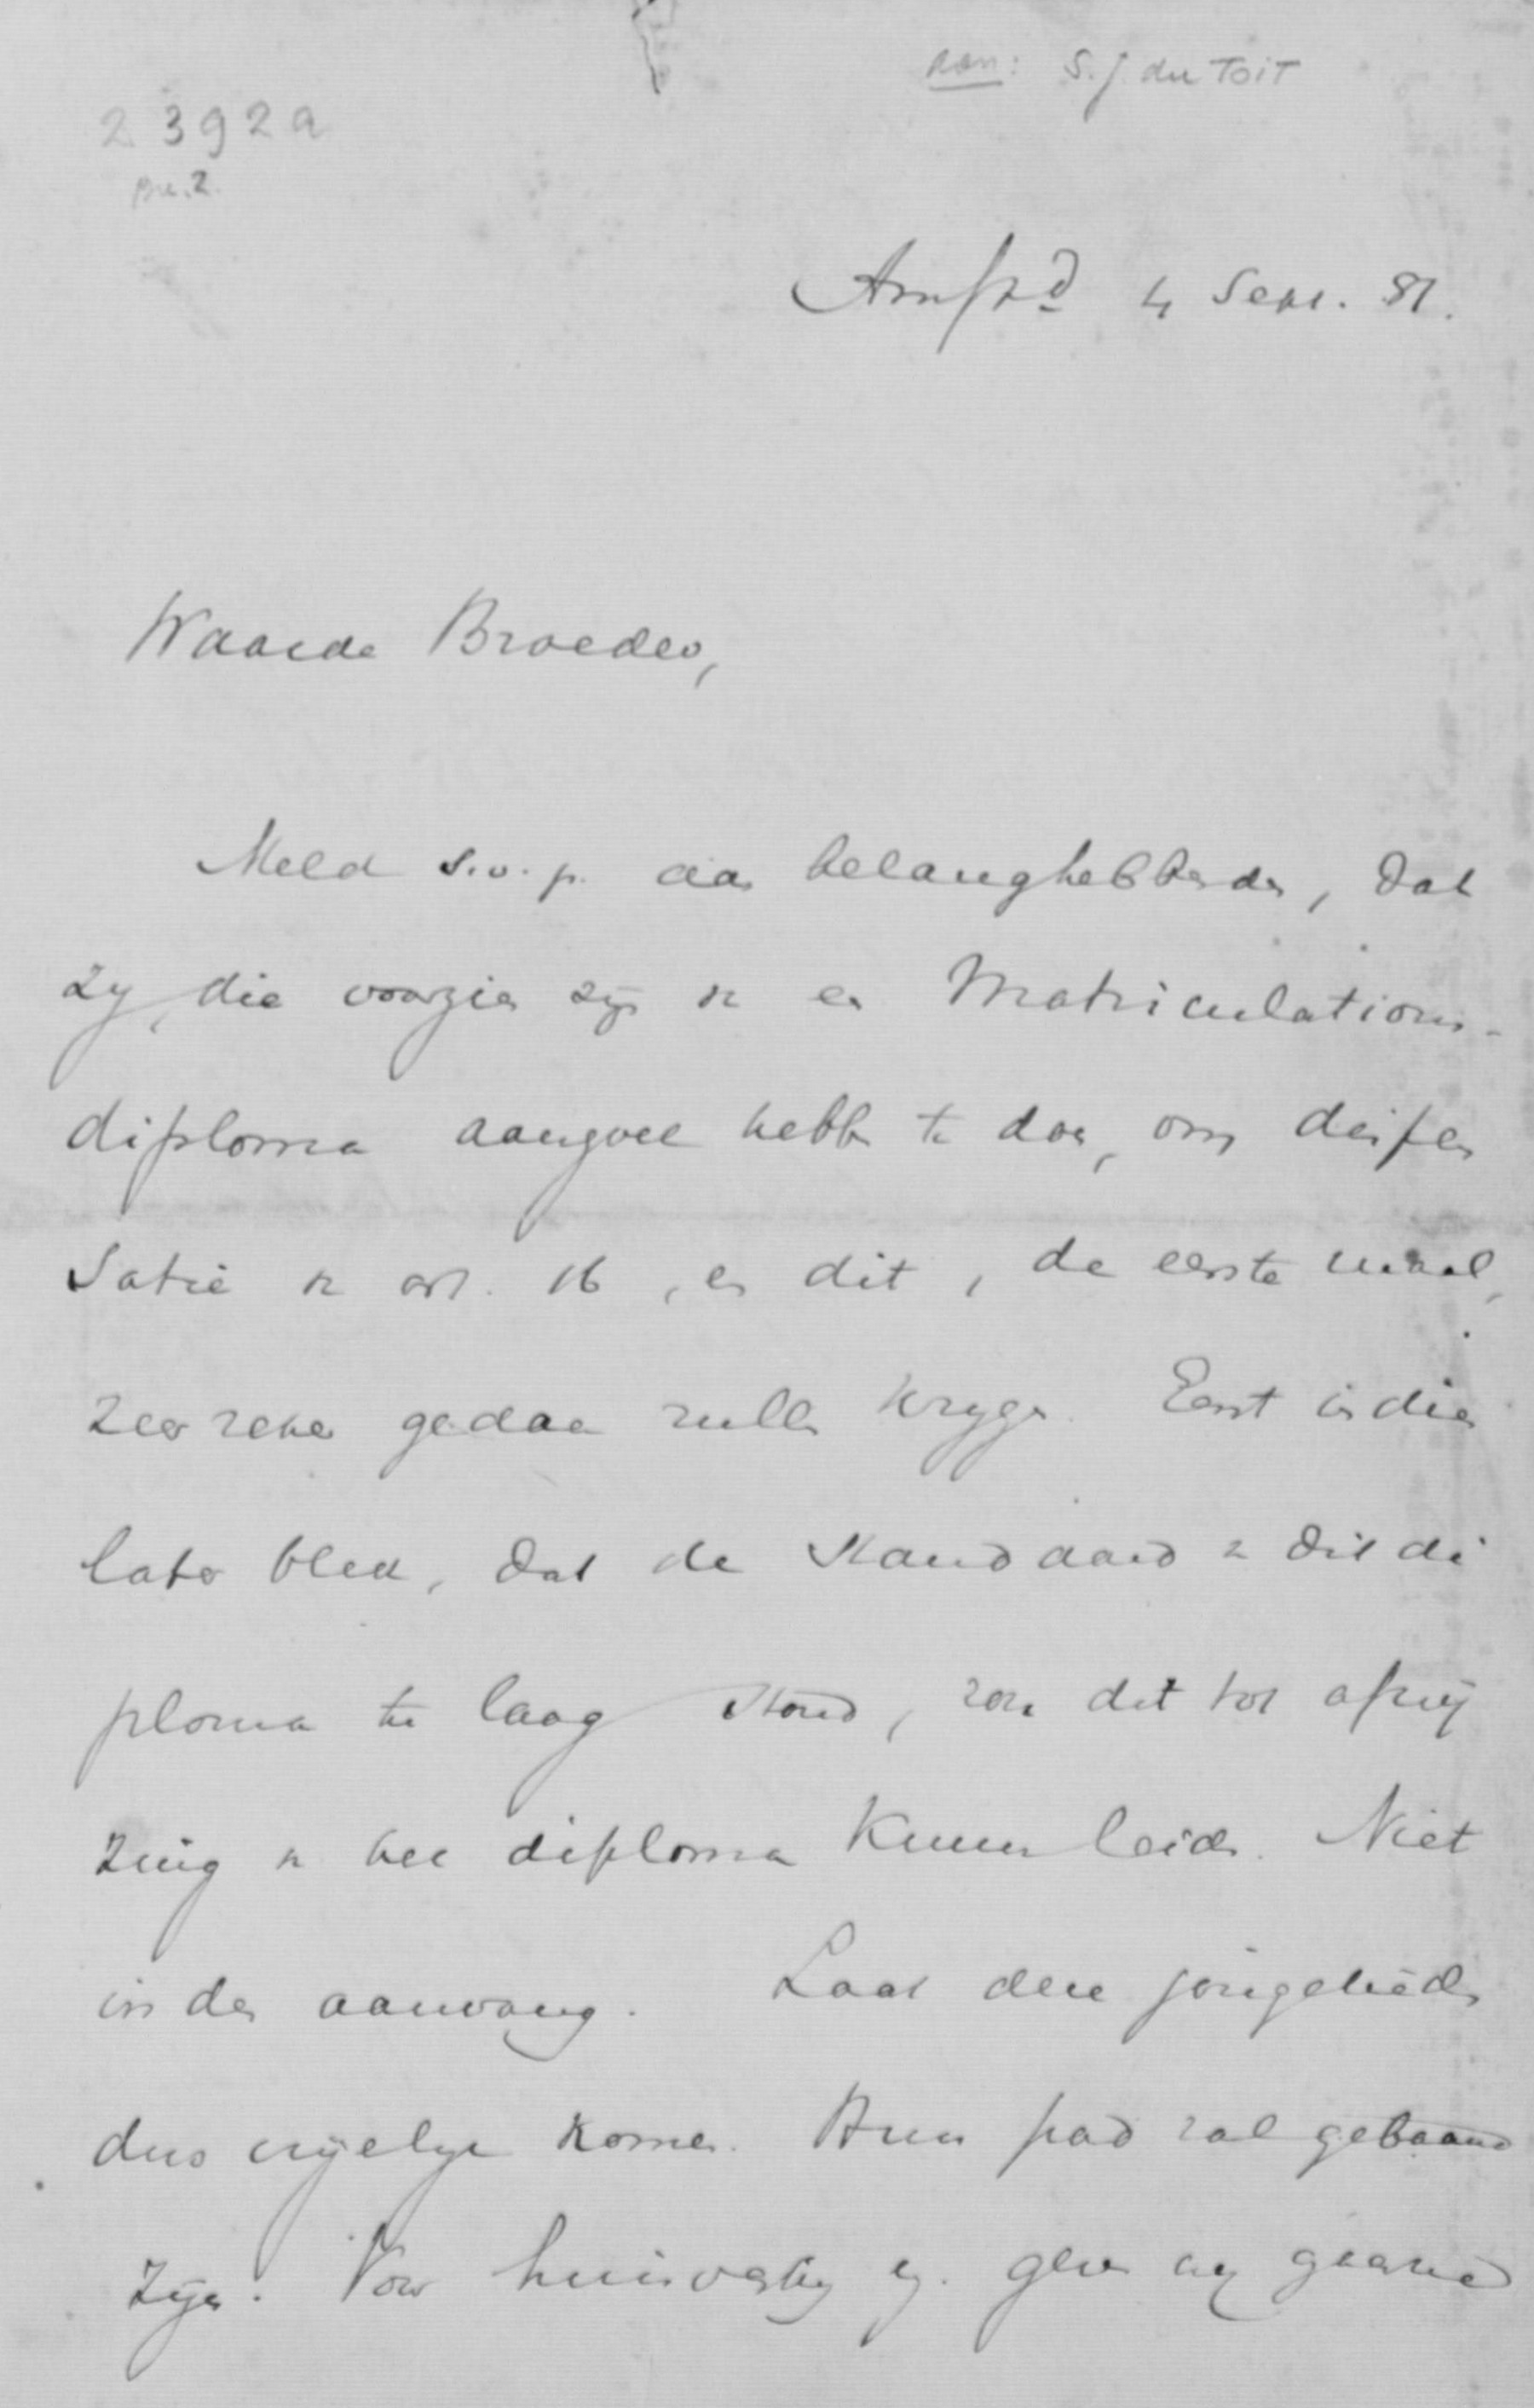 aan: S.J. du Toit
2392a
Br. 2.
Amstd 4 Sept. 81.
Waarde Broeder,
Meld s.v.p. aan belanghebbenden, dat
zy, die voorzien zijn v een Matriculations-
diploma aanzoek hebben te doen, om dispen
satie v art. 16, en dit, de eerste maal,
zeer zeker gedaan zullen krygen. Eerst indien
later bleek, dat de standaard v dit di
ploma te laag stond, zou dit tot afwij
zing v het diploma kunnen leiden. Niet
in den aanvang. Laat deze jongelieden
dus vrijelyk komen. Hun pad zal gebaand
zijn. Voor huisvesting geven wy gaarne